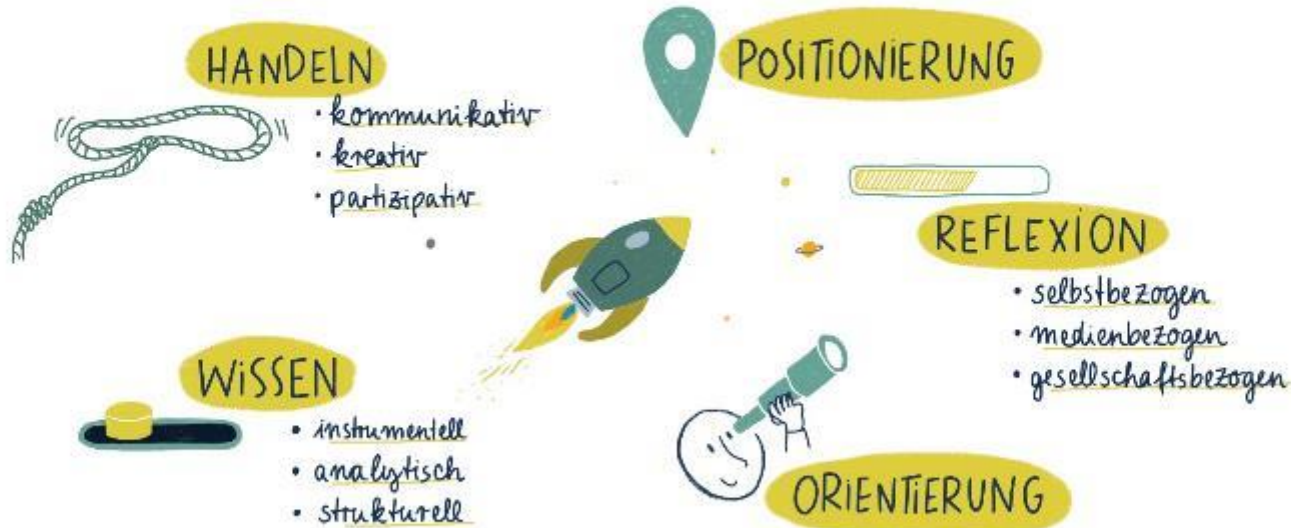 HANDELN
• kommunikativ
• kreativ
• partizipativ
POSITIONIERUNG
REFLEXION
• selbstbezogen
• medienbezogen
• gesellschaftsbezogen
WISSEN
• instrumentell
• analytisch
• strukturell
ORIENTIERUNG